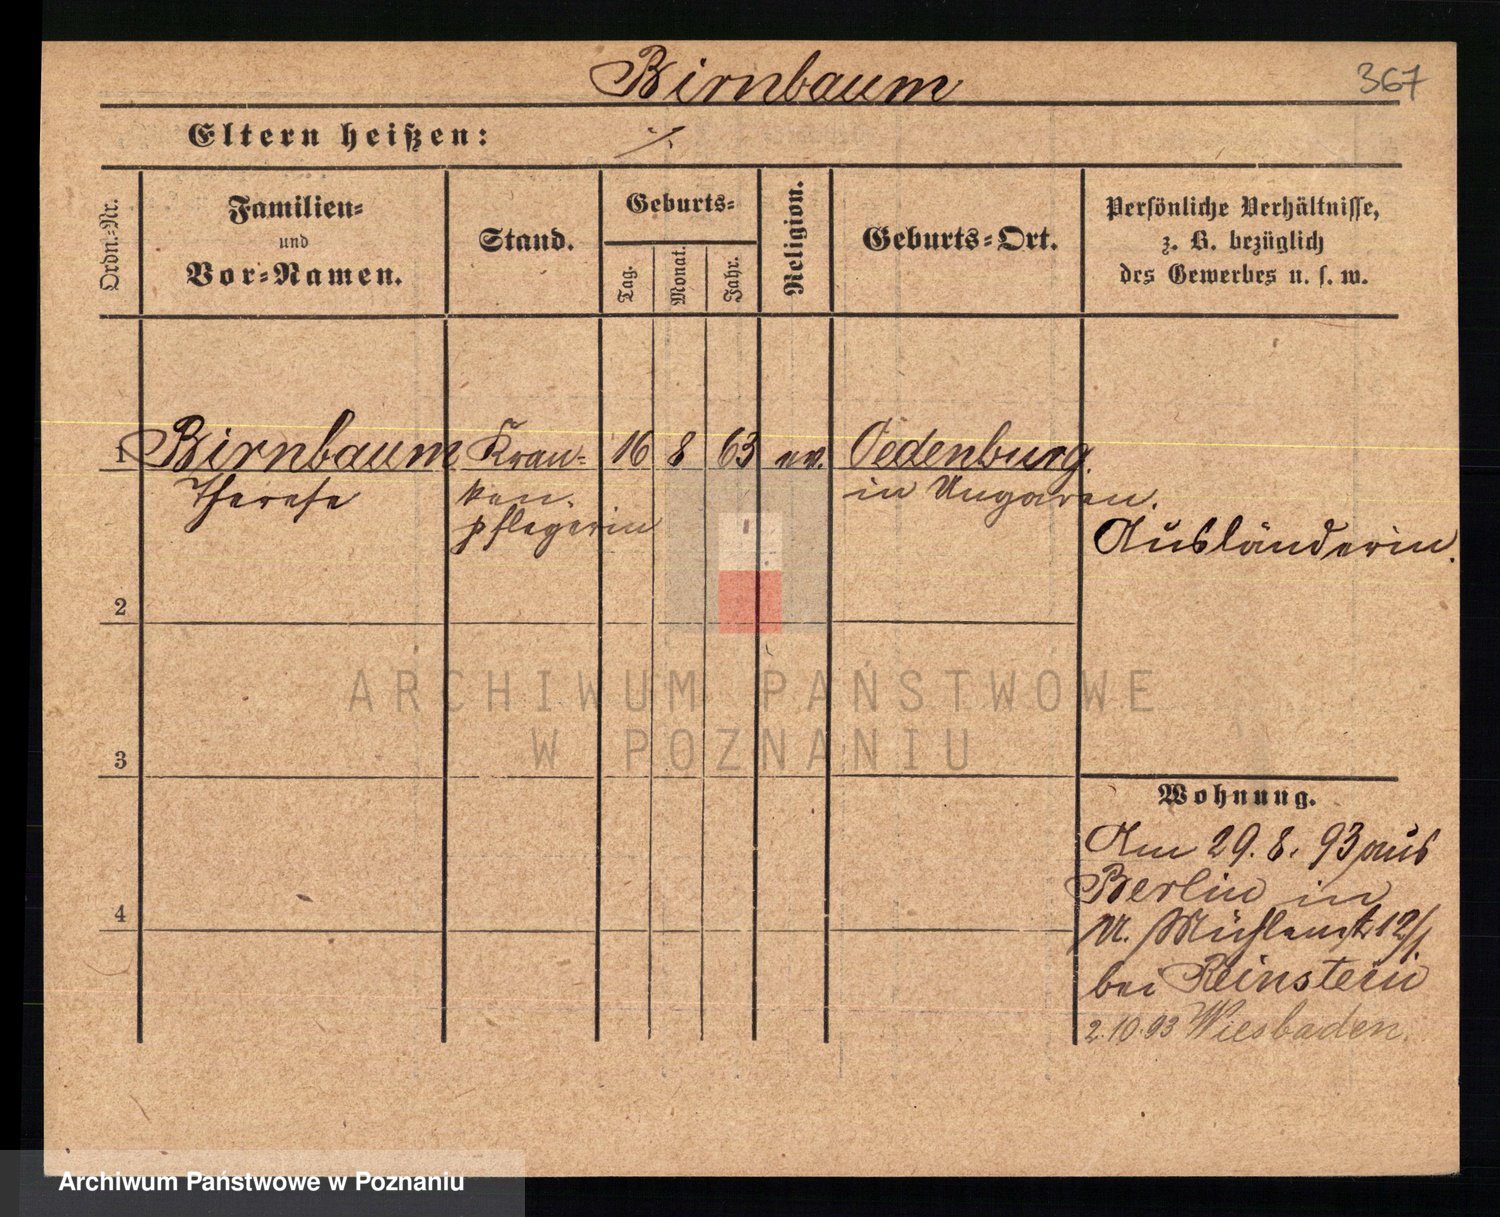 Birnbaum
367
Eltern heißen:
./.
Ordn.-Nr.
Familien-
und
Vor-Namen.
Stand.
Geburts-
Tag.
Monat.
Jahr.
Religion.
Geburts-Ort.
Persönliche Verhältnisse,
z. B. bezüglich
des Gewerbes u. s. w.
1 Birnbaum Kran- 16 8 63 ev. Oedenburg
Therese ken- in Ungaren.
pflegerin
Ausländerin.
2
ARCHIWUM PAŃSTWOWE
W POZNANIU
3
Wohnung.
Am 29. 8. 93 aus
Berlin in
4
Mühlenstr 12/1
bei Reinstein
2.10.93 Wiesbaden.
Archiwum Państwowe w Poznaniu